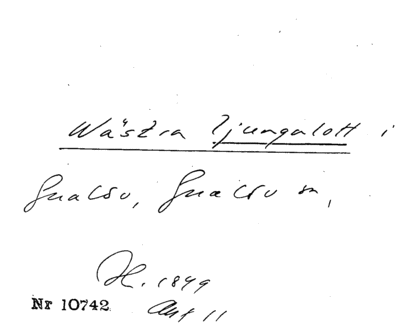 Wästra Ljungalott i
Gualöv, Gualöv sn,
H. 1849
Nr 10742. Akt 11